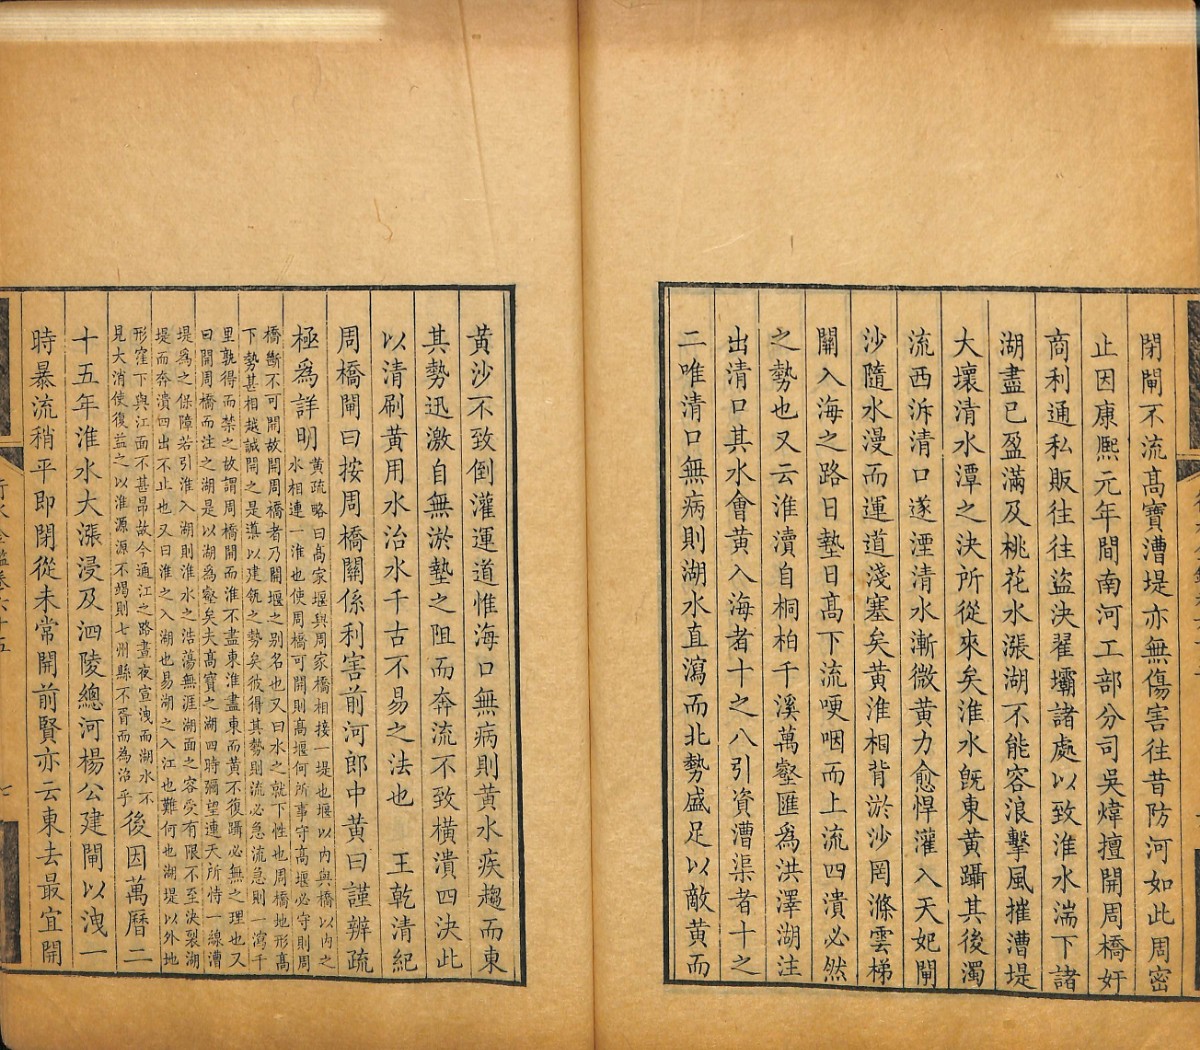 閉閘不流高寶漕堤亦無傷害往昔防河如此周密
止因康熙元年間南河工部分司吳煒擅開周橋奸
商利通私販往往盜決翟壩諸處以致淮水湍下諸
湖盡已盈滿及桃花水漲湖不能容浪擊風摧漕堤
大壞清水潭之決所從來矣淮水旣東黃躡其後濁
流西泝清口遂湮清水漸微黃力愈悍灌入天妃閘
沙隨水漫而運道淺塞矣黃淮相背淤沙罔滌雲梯
關入海之路日墊日高下流哽咽而上流四潰必然
之勢也又云淮瀆自桐柏千溪萬壑匯爲洪澤湖注
出清口其水會黃入海者十之八引資漕渠者十之
二唯清口無病則湖水直瀉而北勢盛足以敵黃而
黃沙不致倒灌運道惟海口無病則黃水疾趨而東
其勢迅激自無淤墊之阻而奔流不致橫潰四決此
以清刷黃用水治水千古不易之法也　王乾清紀
周橋閘曰按周橋關係利害前河郎中黃曰謹辨疏
極爲詳明
黃疏略曰高家堰與周家橋相接一堤也堰以內與橋以內之
水相連一淮也使周橋可開則高堰何所事守高堰必守則周
橋斷不可開故開周橋者乃開堰之別名也又曰水之就下性也周橋地形高
下勢甚相越誠開之是導以建瓴之勢矣彼得其勢則流必急流急則一瀉千
里孰得而禁之故謂周橋開而淮不盡東淮盡東而黃不復躡必無之理也又
曰開周橋而注之湖是以湖爲壑矣夫高寶之湖四時彌望連天所恃一線漕
堤爲之保障若引淮入湖則淮水之浩蕩無涯湖面之容受有限不至決裂湖
堤而奔潰四出不止也又曰淮之入湖也易湖之入江也難何也湖堤以外地
形窪下與江面不甚昂故今通江之路晝夜宣洩而湖水不
見大消使復益之以淮源源不竭則七州縣不胥而為沼乎
後因萬曆二
十五年淮水大漲浸及泗陵總河楊公建閘以洩一
時暴流稍平即閉從未常開前賢亦云東去最宜開
行水金鑑卷六十五
七